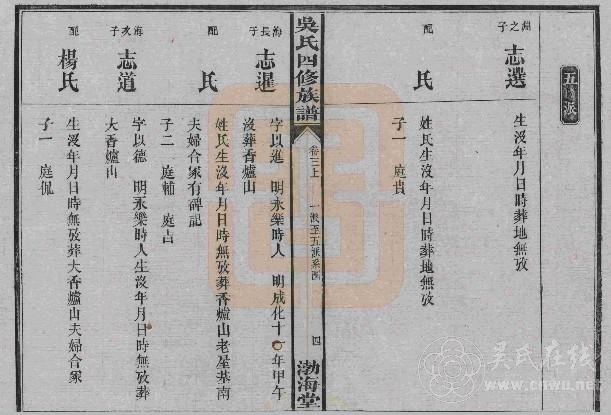 五派
淵之子
志選
生沒年月日時葬地無攷
配
氏
姓氏生沒年月日時葬地無攷
子一 庭貴
吳氏四修族譜
卷三上
一派至五派系圖
四
渤海堂
海長子
志暹
字以進 明永樂時人 明成化十年甲午
沒葬香爐山
配
氏
姓氏生沒年月日時無攷葬香爐山老屋基南
夫婦合冢有碑記
子二 庭輔 庭吉
海次子
志道
字以德 明永樂時人生沒年月日時無攷葬
大香爐山
配
楊氏
生沒年月日時無攷葬大香爐山夫婦合冢
子一 庭侃
吳氏在线
www.cnwu.net